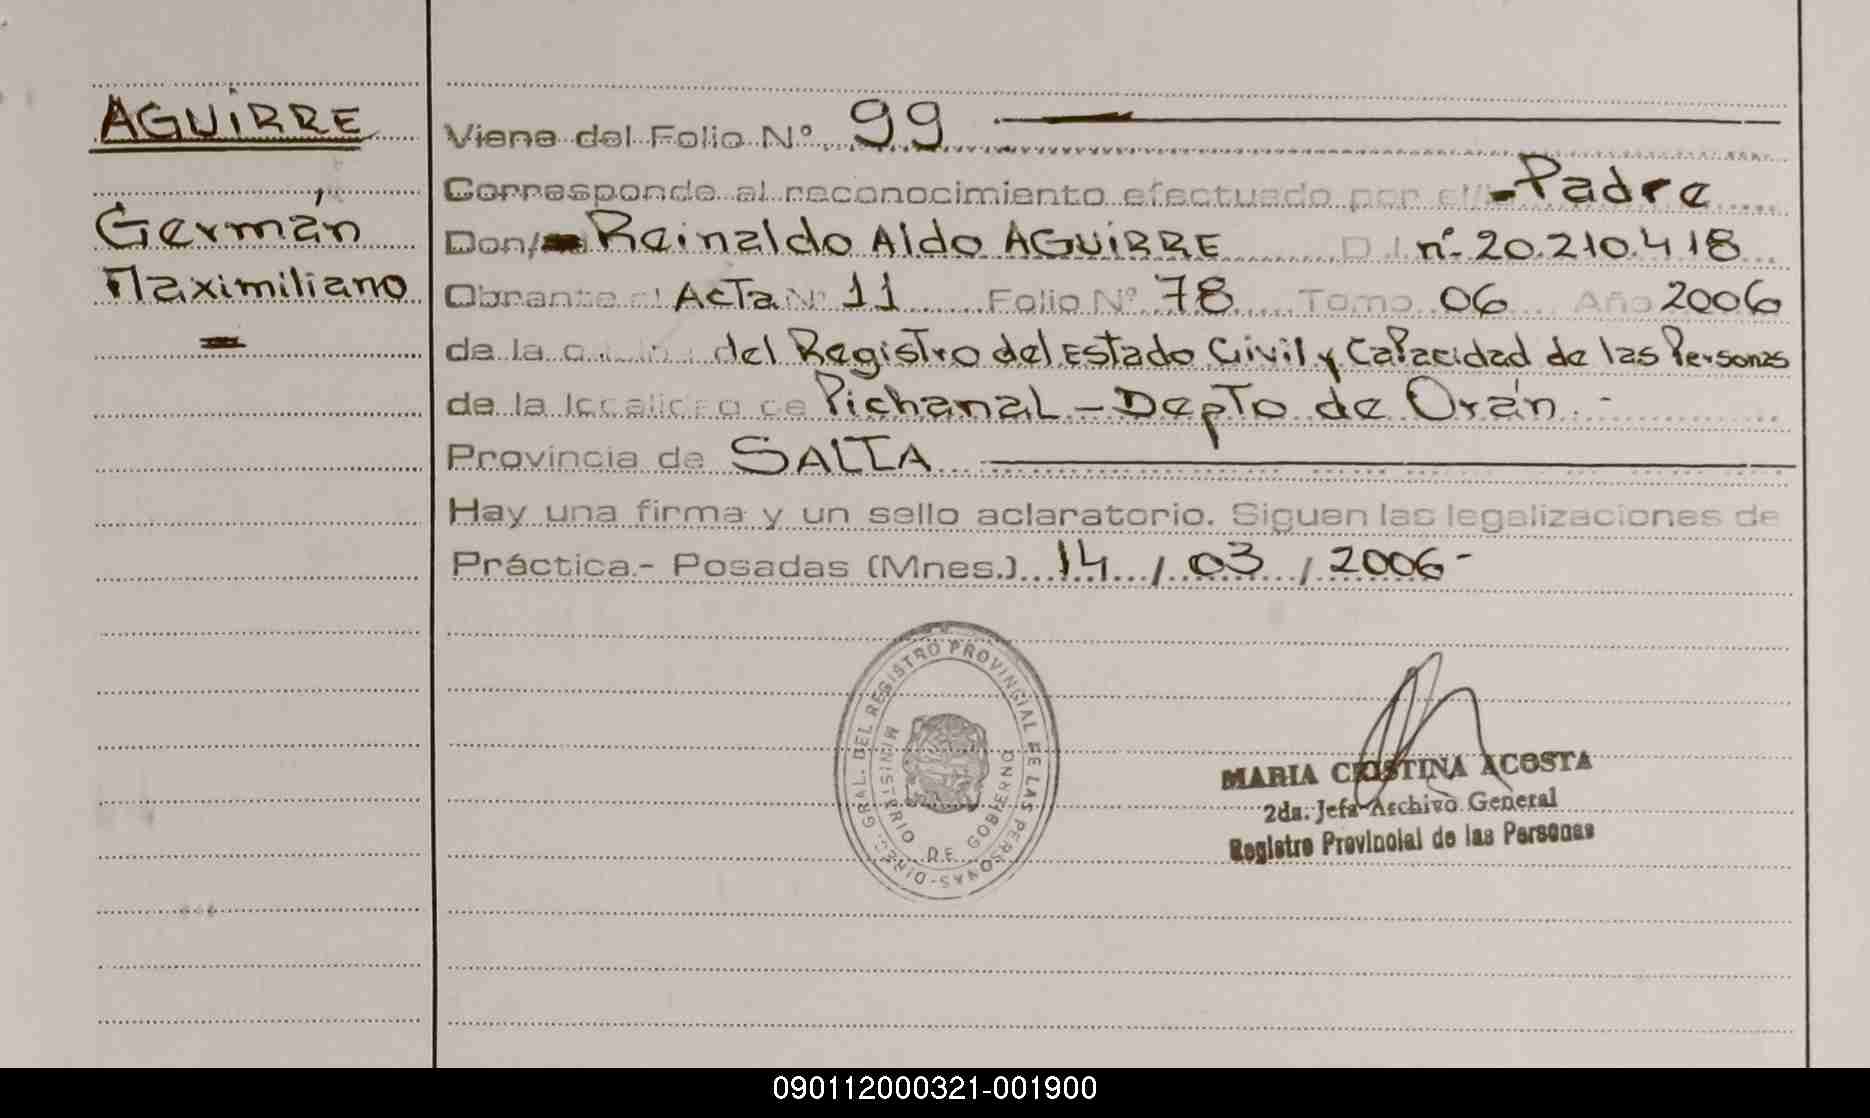 AGUIRRE
Germán
Maximiliano
Viene del Folio Nº 99
Corresponde al reconocimiento efectuado por el Padre
Don/ Reinaldo Aldo AGUIRRE D.I. nº 20.210.418
Obrante el Acta Nº 11 Folio Nº 78 Tomo 06 Año 2006
de la del Registro del Estado Civil y Capacidad de las Personas
de la localidad de Pichanal - Depto de Orán. -
Provincia de SALTA
Hay una firma y un sello aclaratorio. Siguen las legalizaciones de
Práctica.- Posadas (Mnes.) 14 / 03 / 2006-
DIREC. GRAL. DEL REGISTRO PROVINCIAL DE LAS PERSONAS-
MINISTERIO DE GOBIERNO
MARIA CRISTINA ACOSTA
2da. Jefa Archivo General
Registro Provincial de las Personas
090112000321-001900